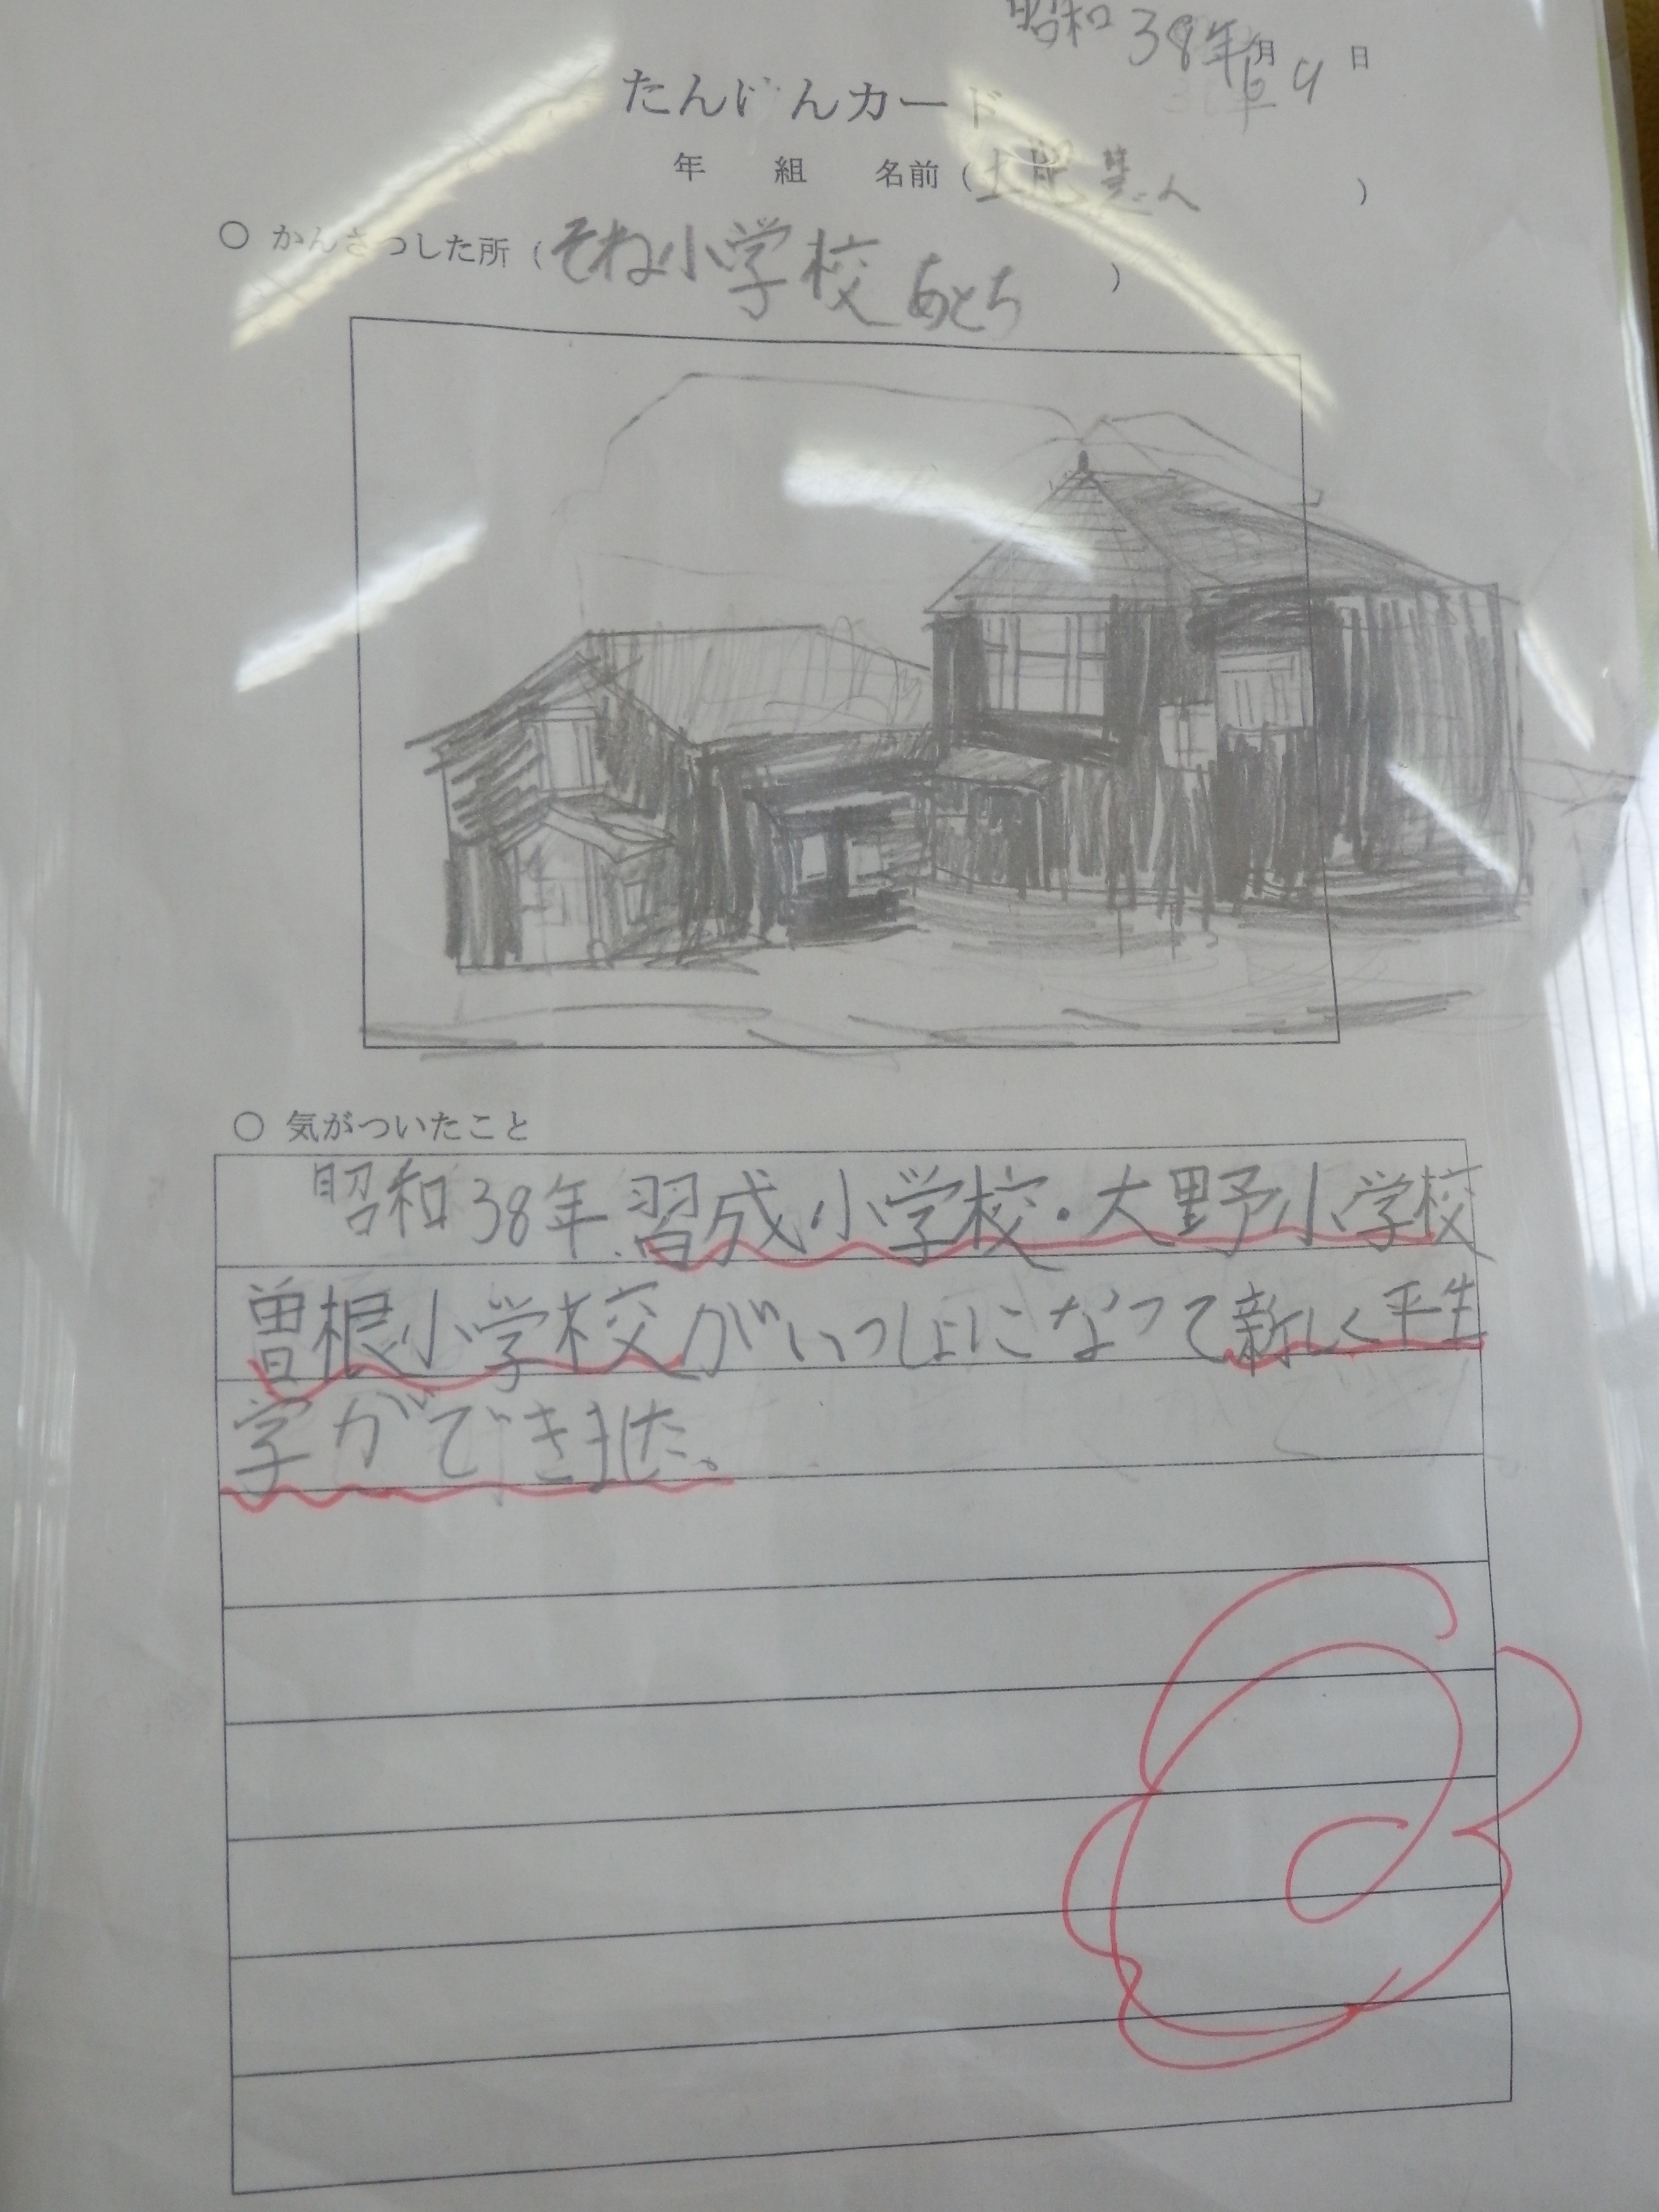 昭和38年
月 日
たんけんカード
年 組 名前( )
○ かんさつした所(そね小学校 あとち )
○ 気がついたこと
昭和38年 習成小学校・大野小学校
曽根小学校がいっしょになって新しく平生
学ができました。